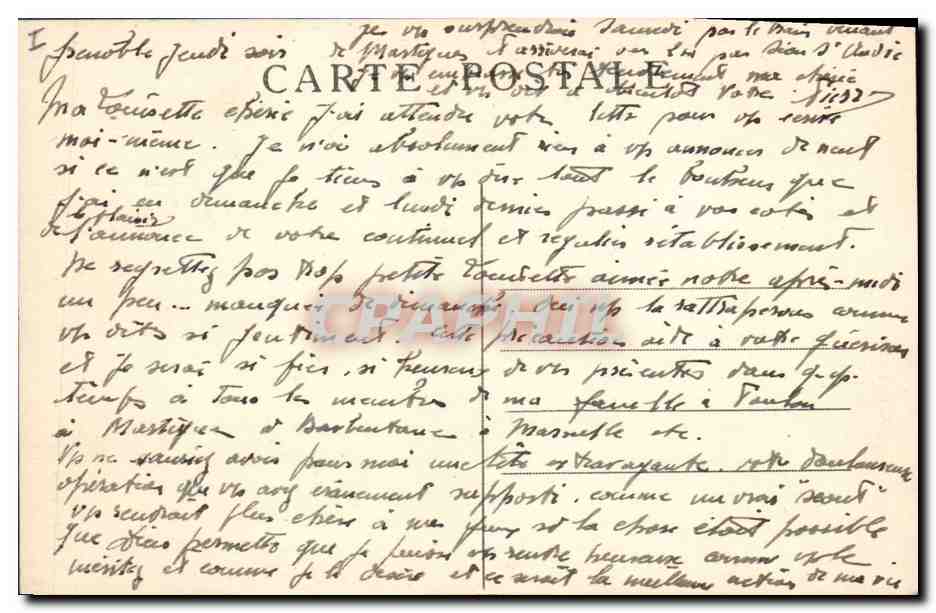 I
Grenoble Jeudi soir
je vs surprendrai Samedi par le train venant
de Martigues et arriverai vers
CARTE POSTALE
tendrement ma chérie
et vs dis à bientôt Votre Pierr
Ma Louisette chérie j'ai attendu votre lettre pour vs écrire
moi-même. Je n'ai absolument rien à vs annoncer de neuf
si ce n'est que je tiens à vs dire tout le bonheur que
j'ai eu dimanche et lundi dernier passé à vos cotés et
le plaisir
de l'annonce de votre continuel et régulier rétablissement.
Ne regrettez pas trop petite Louisette aimée notre après-midi
un peu... manquée de dimanche. Oui vs la rattraperons comme
vs dites si gentiment. Cette précaution aide à votre guérison
et je serai si fier, si heureux de vs présenter dans qq.
temps à tous les membres de ma famille à Toulon
à Martigues à Barbentane à Marseille etc.
Vs ne sauriez avoir pour moi une tête extravagante. votre douloureuse
opération que vs avez crânement supporté comme un vrai "scout"
vs rendrait plus chère à mes yeux si la chose était possible
que Dieu permette que je puisse vs rendre heureuse comme vs le
méritez et comme je le désire et ce serait la meilleure action de ma vie
CPAPHIL